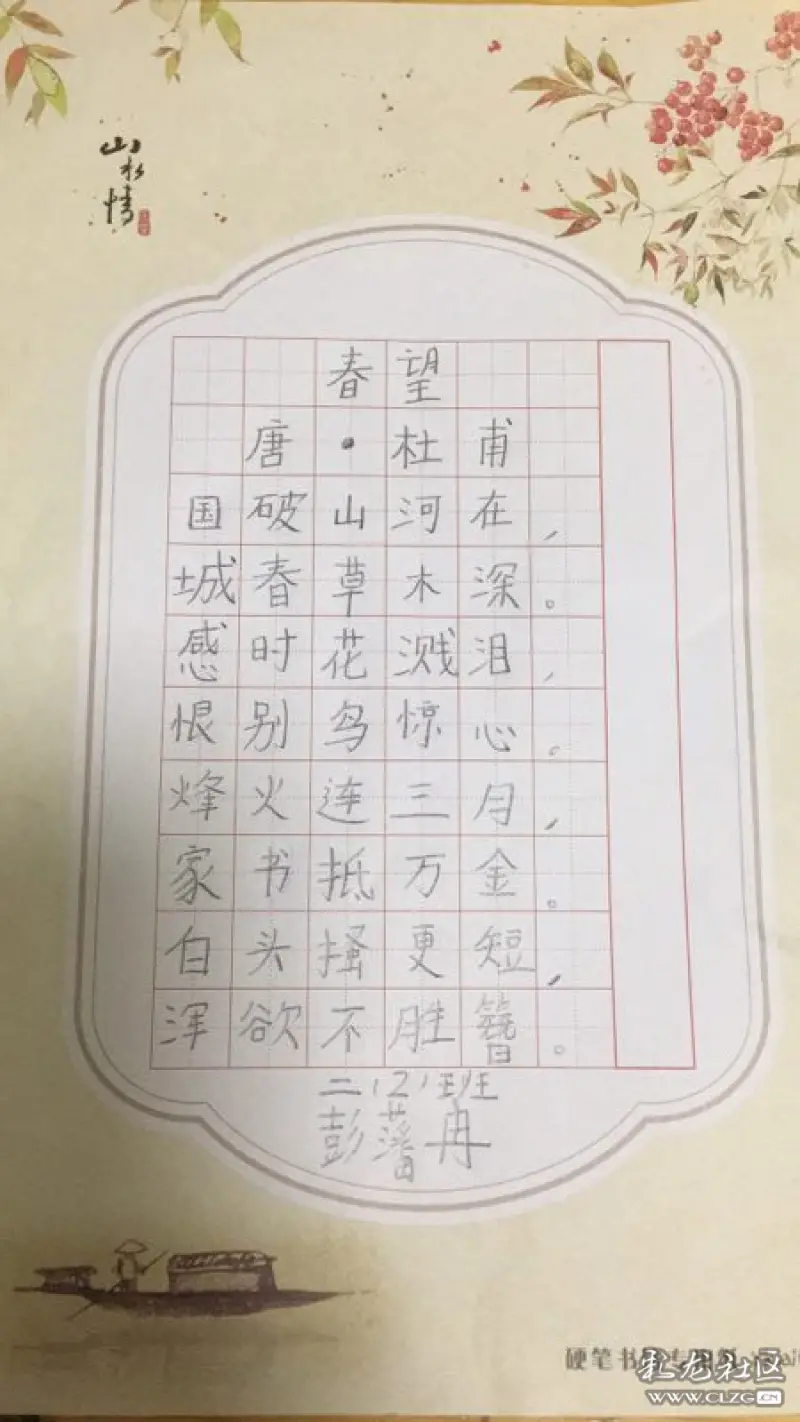 山水情
春望
唐·杜甫
国破山河在，
城春草木深。
感时花溅泪，
恨别鸟惊心。
烽火连三月，
家书抵万金。
白头搔更短，
浑欲不胜簪。
二(2)班
彭蕃冉
硬笔书
龙社区
WWW.CLZG.CN